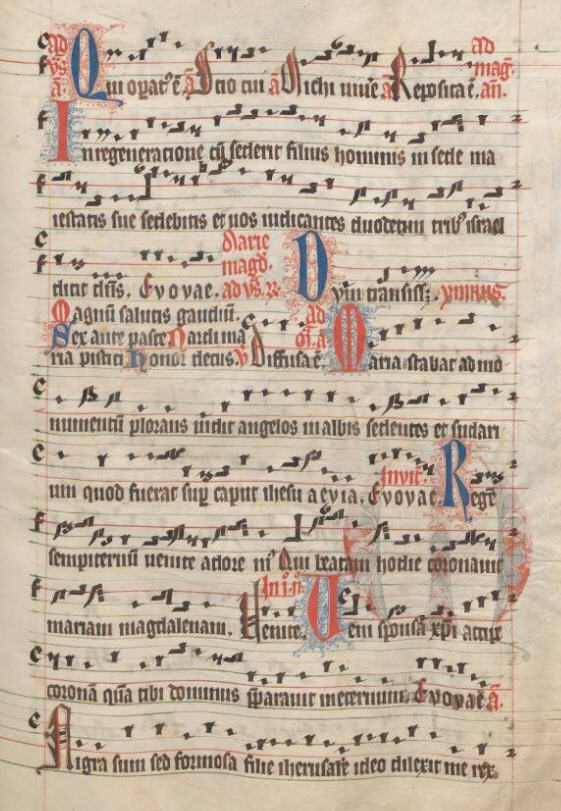 ad ad
vs̄ Qui opat᷒ ē a Scio cui a Michi uiuē a Reposita ē mag̃.
a añ.
In regeneratione cū sederit filius hominis in sede ma
iestatis sue sedebitis et uos iudicantes duodecim trib᷒ israel
dicit dn̄s. Evovae. Marie magd̄. ad vs̄. Dum transiss; ymnus.
Magnū salutis gaudiū.
Sex ante pasce Nardi ma ad
ria pistici honor decus. v Diffusa ē. Maria stabat ad mo
numentū plorans uidit angelos in albis sedentes et sudari
um quod fuerat sup caput ihesu aevia. Evovae. Invit̄. Regē
sempiternū uenite adore m᷒ Qui beatam hodie coronauit
mariam magdalenam. Venite. In i. n̄ Veni sponsa xp̄i accipe
coronā quā tibi dominus p̄parauit in eternum. Evovae a.
Nigra sum sed formosa filie iherusal̄e ideo dilexit me rex